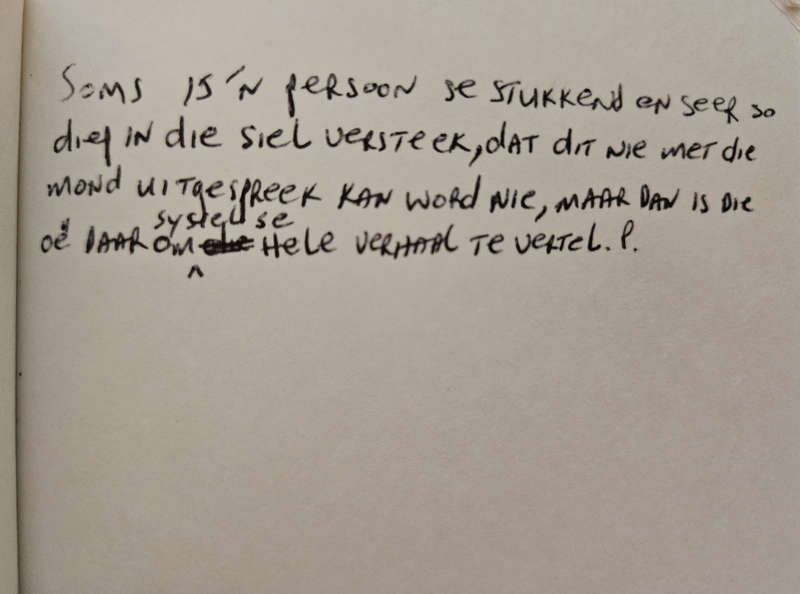 Soms is 'n persoon se stukkend en seer so
diep in die siel versteek, dat dit nie met die
mond uitgespreek kan word nie, maar dan is die
sy siel se
oë daar om hele verhaal te vertel. P.